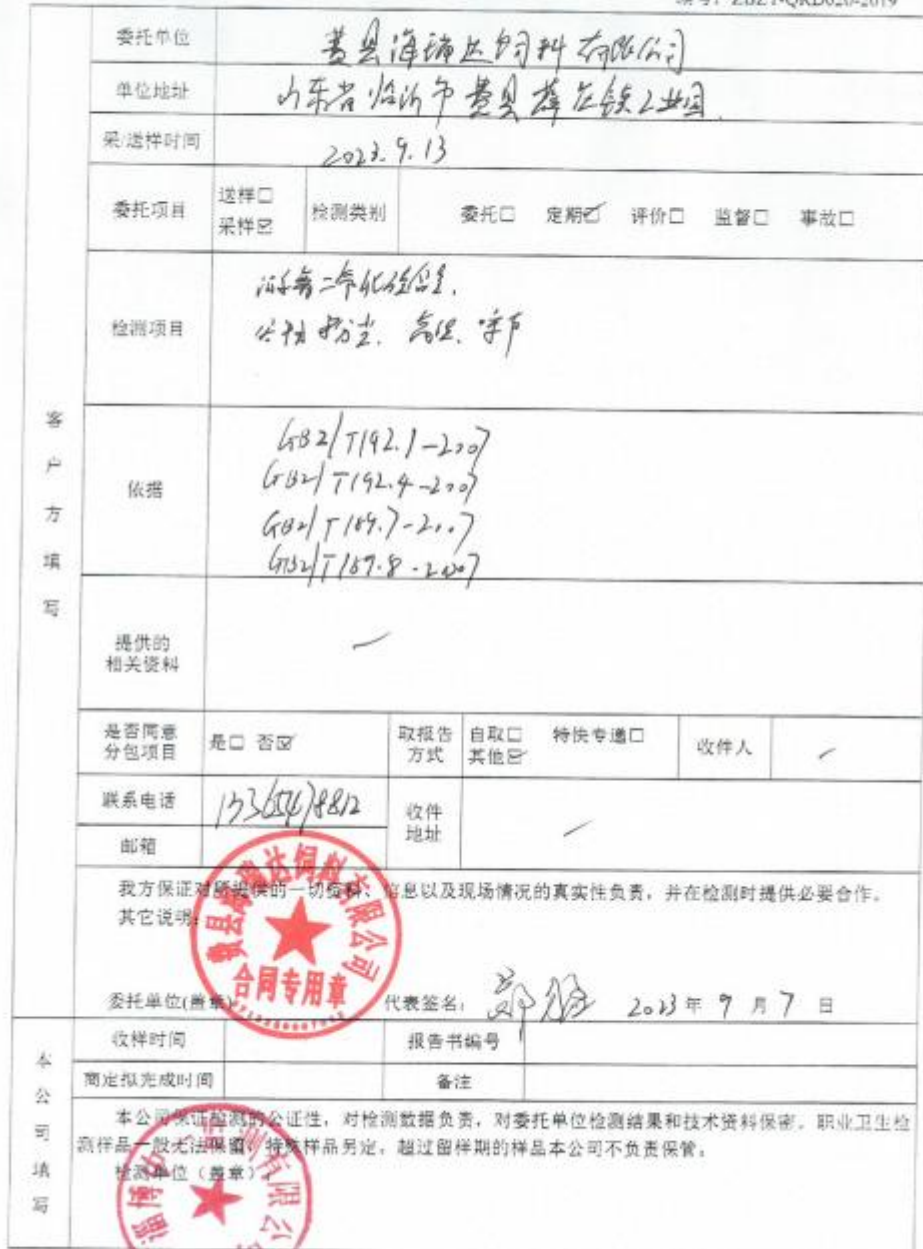 编号：ZBZY-QRD020-2019
客户方填写
委托单位 费县海瑞达饲料有限公司
单位地址 山东省临沂市费县薛庄镇工业园
采/送样时间 2023.9.13
委托项目 送样□ 采样☑ 检测类别 委托□ 定期☑ 评价□ 监督□ 事故□
检测项目 游离二氧化硅含量、
粉尘、高温、噪声
依据 GBZ/T192.1-2007
GBZ/T192.4-2007
GBZ/T189.7-2007
GBZ/T189.8-2007
提供的相关资料 /
是否同意分包项目 是□ 否☑ 取报告方式 自取□ 特快专递□ 其他☑ 收件人 /
联系电话
邮箱 收件地址 /
我方保证对所提供的一切资料、信息以及现场情况的真实性负责，并在检测时提供必要合作。
其它说明：
费县海瑞达饲料有限公司
合同专用章
委托单位(盖章) 代表签名： 2023年9月7日
本公司填写
收样时间 报告书编号
商定拟完成时间 备注
本公司保证检测的公证性，对检测数据负责，对委托单位检测结果和技术资料保密。职业卫生检
测样品一般无法保留，特殊样品另定，超过留样期的样品本公司不负责保管。
检测单位（盖章）